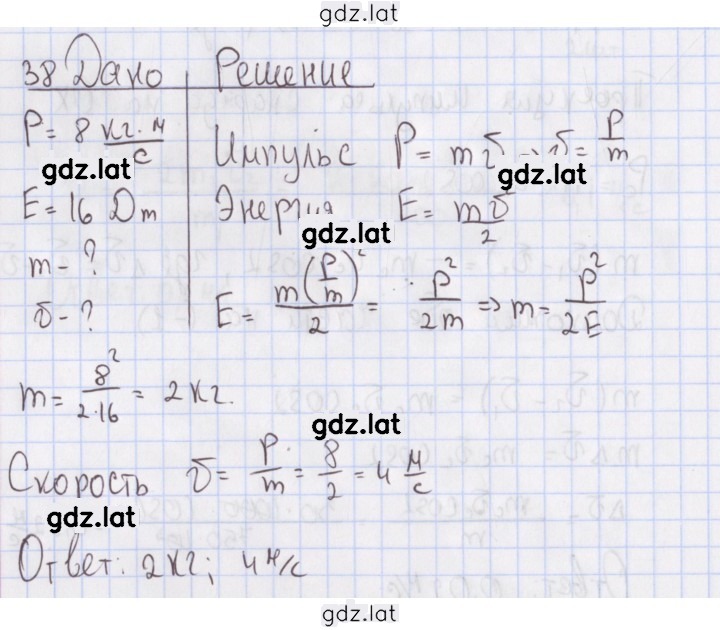 gdz.lat
38 Дано Решение
P = 8 кг·м/с
Импульс P = mυ → υ = P/m
gdz.lat
gdz.lat
E = 16 Дж
Энергия E = mυ/2
gdz.lat
m - ?
υ - ?
E = m(P/m)²/2 = P²/2m => m = P²/2E
m = 8²/2·16 = 2 кг.
gdz.lat
Скорость υ = P/m = 8/2 = 4 м/с
gdz.lat
Ответ: 2 кг; 4 м/с
gdz.lat